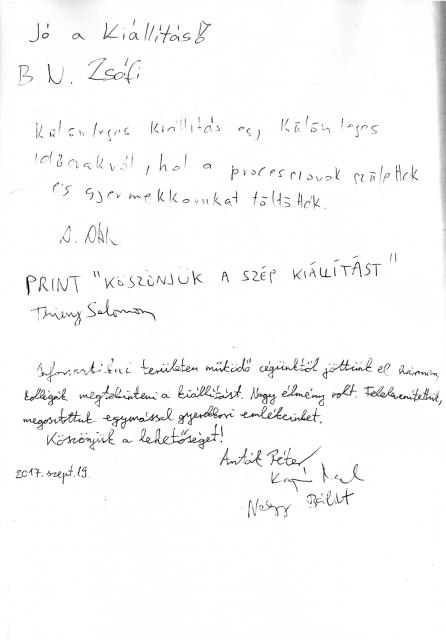 Jó a Kiállítás!
B. N. Zsófi
Különleges kiállítás egy különleges
időszakról, hol a processzorok születtek
és gyermekkorukat töltötték.
PRINT "KÖSZÖNJÜK A SZÉP KIÁLLÍTÁST"
Salomon
Informatikai területen működő cégünktől jöttünk el hárman,
kollégák megtekinteni a kiállítást. Nagy élmény volt. Felelevenítettük,
megosztottuk egymással gyerekkori emlékeinket.
Köszönjük a lehetőséget!
Antók Péter
2017. szept. 19.
Nagy Bálint